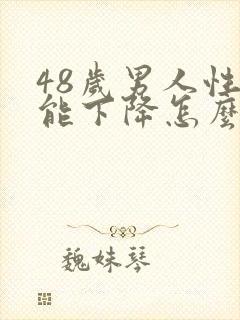 48歲男人性
能下降怎麼
魏妹琴